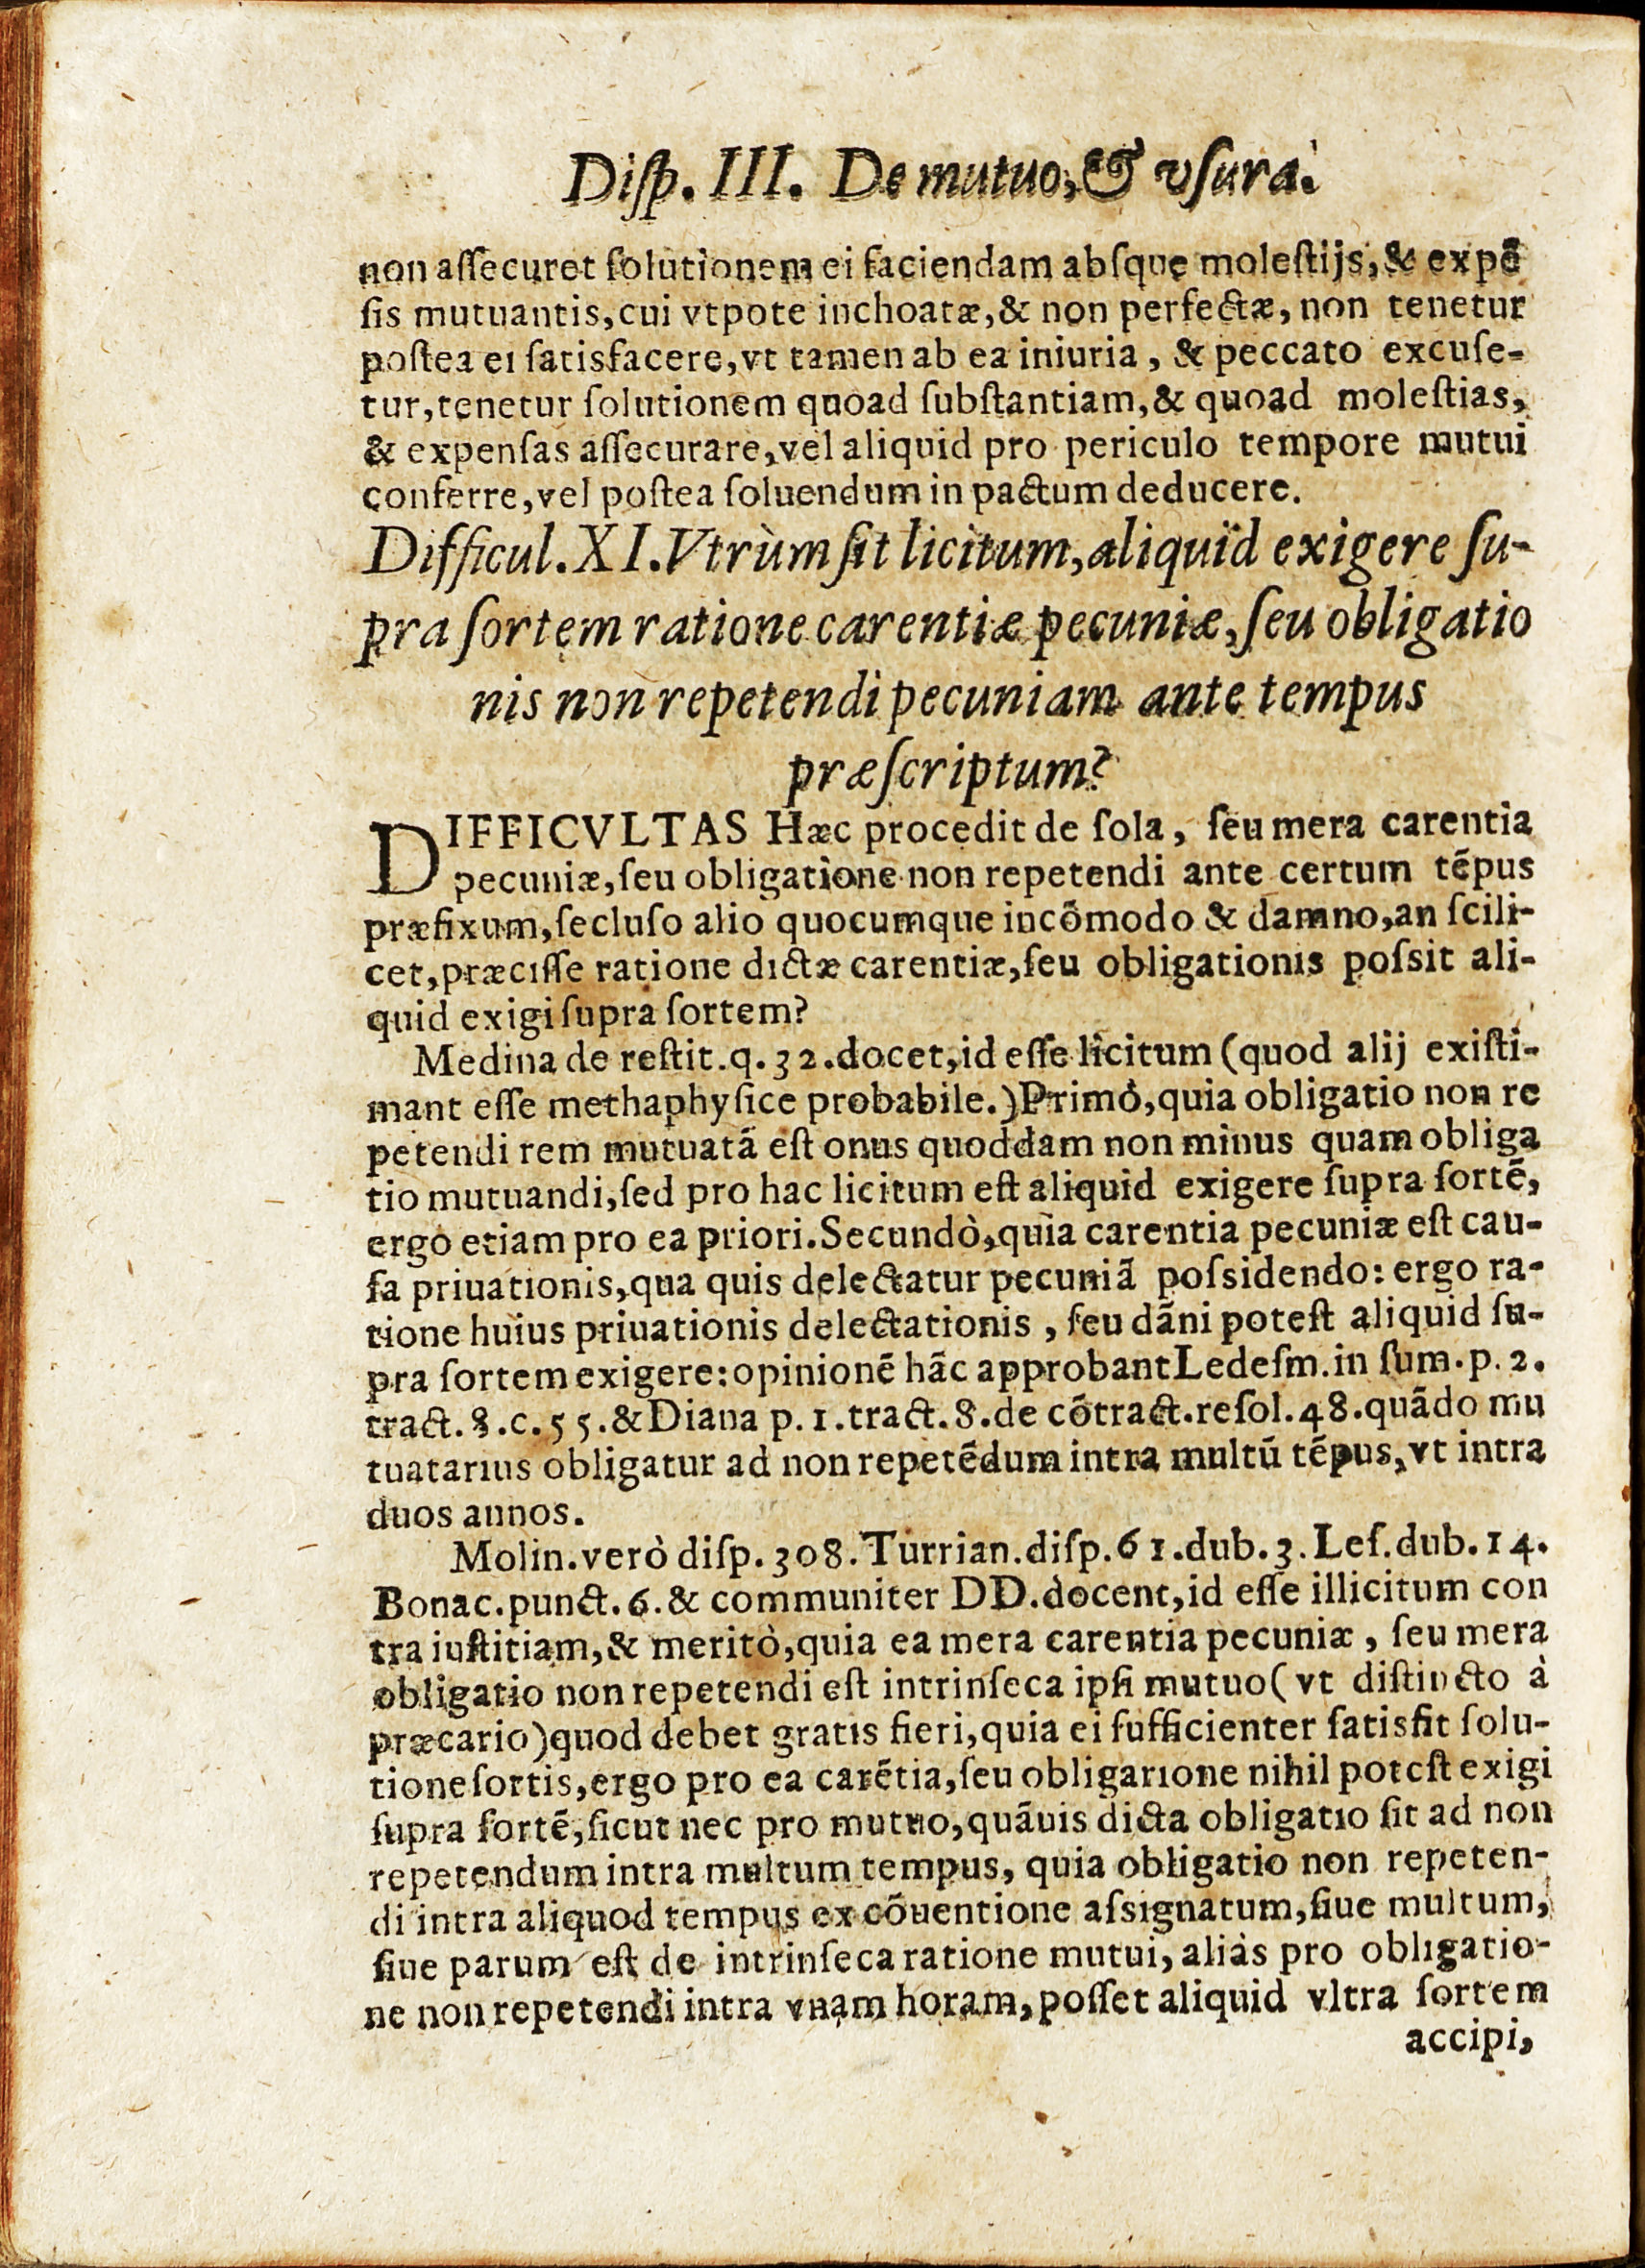 Diſp. III. De mutuo, & vſura.
non aſſecuret ſolutionem ei faciendam abſque moleſtijs, & expẽ
ſis mutuantis, cui vtpote inchoatæ, & non perfectæ, non tenetur
poſtea ei ſatisfacere, vt tamen ab ea iniuria, & peccato excuſe-
tur, tenetur ſolutionem quoad ſubſtantiam, & quoad moleſtias,
& expenſas aſſecurare, vel aliquid pro periculo tempore mutui
conferre, vel poſtea ſoluendum in pactum deducere.
Difficul. XI. Vtrùm ſit licitum, aliquid exigere ſu-
pra ſortem ratione carentiæ pecuniæ, ſeu obligatio
nis non repetendi pecuniam ante tempus
præſcriptum?
DIFFICVLTAS Hæc procedit de ſola, ſeu mera carentia
pecuniæ, ſeu obligatione non repetendi ante certum tẽpus
præfixum, ſecluſo alio quocumque incõmodo & damno, an ſcili-
cet, præciſſe ratione dictæ carentiæ, ſeu obligationis poſsit ali-
quid exigi ſupra ſortem?
Medina de reſtit. q. 32. docet, id eſſe licitum (quod alij exiſti-
mant eſſe methaphyſice probabile.) Primò, quia obligatio non re
petendi rem mutuatã eſt onus quoddam non minus quam obliga
tio mutuandi, ſed pro hac licitum eſt aliquid exigere ſupra ſortẽ,
ergo etiam pro ea priori. Secundò, quia carentia pecuniæ eſt cau-
ſa priuationis, qua quis delectatur pecuniã poſsidendo: ergo ra-
tione huius priuationis delectationis, ſeu dãni poteſt aliquid ſu-
pra ſortem exigere: opinionẽ hãc approbant Ledeſm. in ſum. p. 2.
tract. 8. c. 55. & Diana p. 1. tract. 8. de cõtract. reſol. 48. quãdo mu
tuatarius obligatur ad non repetẽdum intra multũ tẽpus, vt intra
duos annos.
Molin. verò diſp. 308. Turrian. diſp. 61. dub. 3. Leſ. dub. 14.
Bonac. punct. 6. & communiter DD. docent, id eſſe illicitum con
tra iuſtitiam, & meritò, quia ea mera carentia pecuniæ, ſeu mera
obligatio non repetendi eſt intrinſeca ipſi mutuo (vt diſtincto à
præcario) quod debet gratis fieri, quia ei ſufficienter ſatisfit ſolu-
tione ſortis, ergo pro ea carẽtia, ſeu obligatione nihil poteſt exigi
ſupra ſortẽ, ſicut nec pro mutuo, quãuis dicta obligatio ſit ad non
repetendum intra multum tempus, quia obligatio non repeten-
di intra aliquod tempus ex cõuentione aſsignatum, ſiue multum,
ſiue parum eſt de intrinſeca ratione mutui, aliàs pro obligatio-
ne non repetendi intra vnam horam, poſſet aliquid vltra ſortem
accipi,